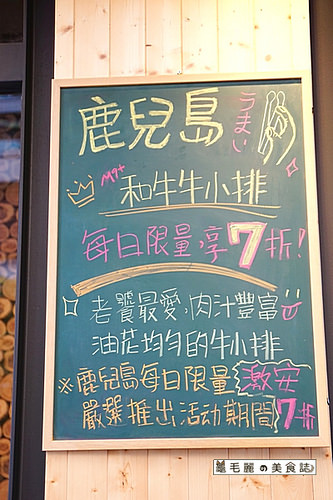 鹿兒島 うまい
M9+
和牛牛小排
每日限量,享7折!
老饕最愛,肉汁豐富
油花均勻的牛小排
※鹿兒島每日限量 激安
嚴選推出活動期間7折
毛麗の美食誌